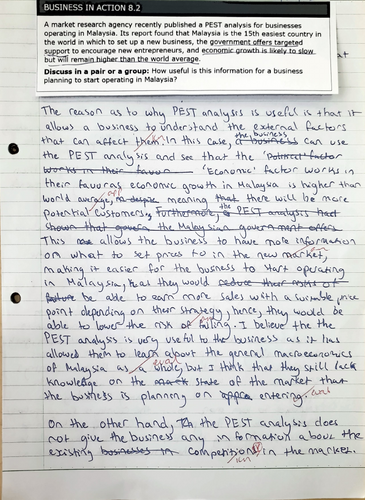 BUSINESS IN ACTION 8.2
A market research agency recently published a PEST analysis for businesses
operating in Malaysia. Its report found that Malaysia is the 15th easiest country
in the world in which to set up a new business, the government offers targeted
support to encourage new entrepreneurs, and economic growth is likely to slow
but will remain higher than the world average.
at
Discuss in a pair or a group: How useful is this information for a business
planning to start operating in Malaysia?
The reason as to why PEST analysis is useful is that it
allows a business to understand the external factors
that can affect them. In this case, a business the business can use
the PEST analysis and see that the 'Political' factor
works in their favour 'Economic' factor works in
their favour as economic growth in Malaysia is higher than
world average, meaning that there will be more
potential customers. Furthermore, the PEST analysis had
shown that govern the Malaysian government offers
This allows the business to have more information
on what to set prices to in the new market,
making it easier for the business to start operating
in Malaysia, as they would reduce their risks of
failure be able to earn more sales with a suitable price
point depending on their strategy, hence, they would be
able to lower the risk of failing. I believe the the
PEST analysis is very useful to the business as it has
allowed them to learn about the general macroeconomics
of Malaysia as a whole, but I think that they still lack
knowledge on the state of the market that
the business is planning on entering.
On the other hand, the PEST analysis does
not give the business any information about the
existing businesses in competition in the market.